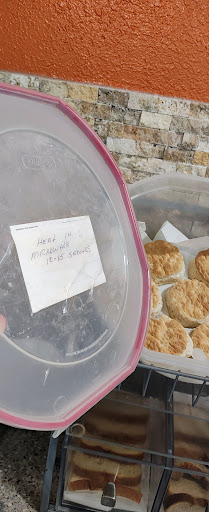 HEAT IN
MICROWAVE
12-15 SECONDS